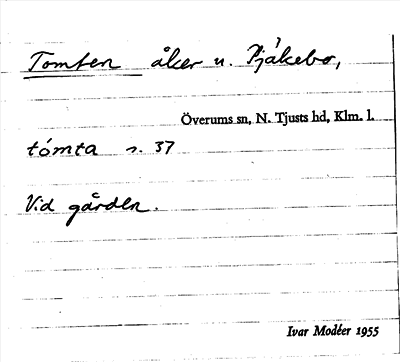 Tomten åker u. Pjåkebo,
Överums sn, N. Tjusts hd, Klm. l.
tómta s. 37
Vid gården.
Ivar Modéer 1955